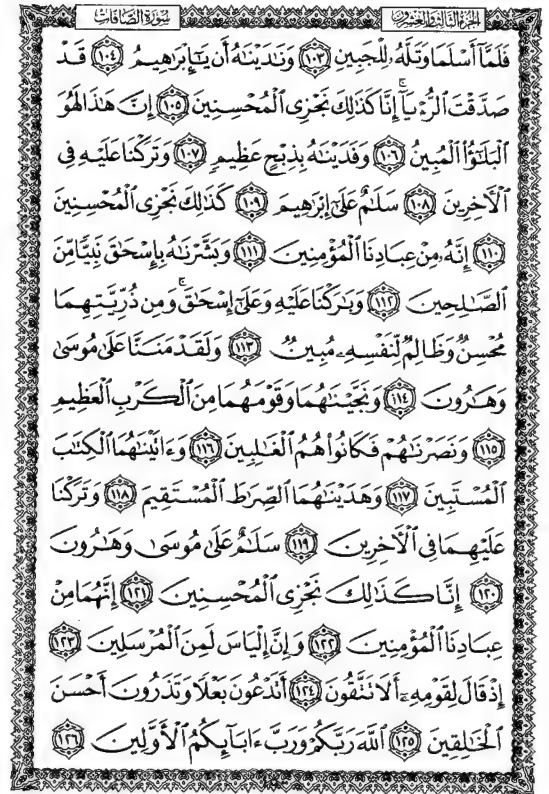 الجزء الثالث والعشرون
سورة الصافات
فَلَمَّآ أَسْلَمَا وَتَلَّهُۥ لِلْجَبِينِ ١٠٣ وَنَٰدَيْنَٰهُ أَن يَٰٓإِبْرَٰهِيمُ ١٠٤ قَدْ
صَدَّقْتَ ٱلرُّءْيَآ ۚ إِنَّا كَذَٰلِكَ نَجْزِى ٱلْمُحْسِنِينَ ١٠٥ إِنَّ هَٰذَا لَهُوَ
ٱلْبَلَٰٓؤُا۟ ٱلْمُبِينُ ١٠٦ وَفَدَيْنَٰهُ بِذِبْحٍ عَظِيمٍ ١٠٧ وَتَرَكْنَا عَلَيْهِ فِى
ٱلْءَاخِرِينَ ١٠٨ سَلَٰمٌ عَلَىٰٓ إِبْرَٰهِيمَ ١٠٩ كَذَٰلِكَ نَجْزِى ٱلْمُحْسِنِينَ
١١٠ إِنَّهُۥ مِنْ عِبَادِنَا ٱلْمُؤْمِنِينَ ١١١ وَبَشَّرْنَٰهُ بِإِسْحَٰقَ نَبِيًّا مِّنَ
ٱلصَّٰلِحِينَ ١١٢ وَبَٰرَكْنَا عَلَيْهِ وَعَلَىٰٓ إِسْحَٰقَ ۚ وَمِن ذُرِّيَّتِهِمَا
مُحْسِنٌ وَظَالِمٌ لِّنَفْسِهِۦ مُبِينٌ ١١٣ وَلَقَدْ مَنَنَّا عَلَىٰ مُوسَىٰ
وَهَٰرُونَ ١١٤ وَنَجَّيْنَٰهُمَا وَقَوْمَهُمَا مِنَ ٱلْكَرْبِ ٱلْعَظِيمِ
١١٥ وَنَصَرْنَٰهُمْ فَكَانُوا۟ هُمُ ٱلْغَٰلِبِينَ ١١٦ وَءَاتَيْنَٰهُمَا ٱلْكِتَٰبَ
ٱلْمُسْتَبِينَ ١١٧ وَهَدَيْنَٰهُمَا ٱلصِّرَٰطَ ٱلْمُسْتَقِيمَ ١١٨ وَتَرَكْنَا
عَلَيْهِمَا فِى ٱلْءَاخِرِينَ ١١٩ سَلَٰمٌ عَلَىٰ مُوسَىٰ وَهَٰرُونَ
١٢٠ إِنَّا كَذَٰلِكَ نَجْزِى ٱلْمُحْسِنِينَ ١٢١ إِنَّهُمَا مِنْ
عِبَادِنَا ٱلْمُؤْمِنِينَ ١٢٢ وَإِنَّ إِلْيَاسَ لَمِنَ ٱلْمُرْسَلِينَ ١٢٣
إِذْ قَالَ لِقَوْمِهِۦٓ أَلَا تَتَّقُونَ ١٢٤ أَتَدْعُونَ بَعْلًا وَتَذَرُونَ أَحْسَنَ
ٱلْخَٰلِقِينَ ١٢٥ ٱللَّهَ رَبَّكُمْ وَرَبَّ ءَابَآئِكُمُ ٱلْأَوَّلِينَ ١٢٦